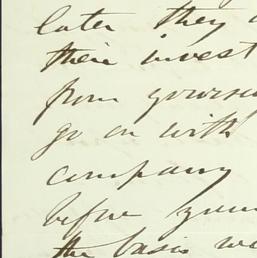 later they
their invest
from yourse
go on with
company
before your
the basis we